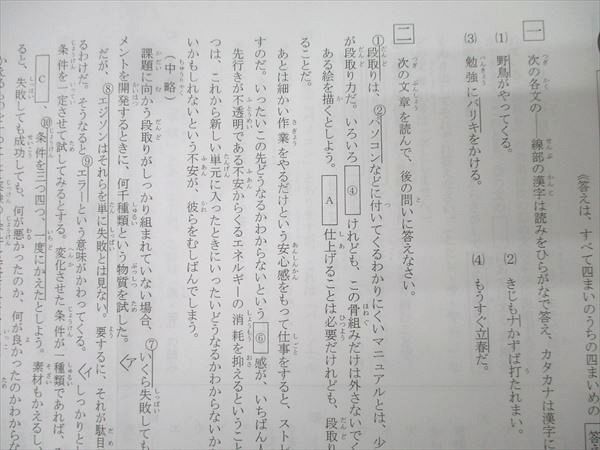 《答えは、すべて四まいのうちの四まいめの
答
一 次の各文の――線部の漢字は読みをひらがなで答え、カタカナは漢字に
(1) 野鳥がやってくる。
(2) きじもナかずば打たれまい。
(3) 勉強にバリキをかける。
(4) もうすぐ立春だ。
二 次の文章を読んで、後の問いに答えなさい。
①段取りは、②パソコンなどに付いてくるわかりにくいマニュアルとは、少
が段取り力だ。いろいろ ④ けれども、この骨組みだけは外さないでく
ある絵を描くとしよう。 A 仕上げることは必要だけれども、段取り
ることだ。
あとは細かい作業をやるだけという安心感をもって仕事をすると、ストレ
すのだ。いったいこの先どうなるかわからないという ⑥ 感が、いちばん人
先行きが不透明である不安からくるエネルギーの消耗を抑えるということ
つは、これから新しい単元に入ったときにいったいどうなるかわからないか
いかもしれないという不安が、彼らをむしばんでしまう。
(中略)
課題に向かう段取りがしっかり組まれていない場合、⑦いくら失敗しても
メントを開発するときに、何千種類という物質を試した。〈ア〉
だが、⑧エジソンはそれらを単に失敗とは見ない。要するに、それが駄目
るわけだ。そうなると⑨エラーという意味がかわってくる。〈イ〉しっかりと
条件を一定させて試してみるとする。変化させた条件が一種類であれば、そ
C 、⑩条件を三つ四つ、一度にかえたとしよう。素材もかえるし、
ると、失敗しても成功しても、何が悪かったのか、何が良かったのかわからな